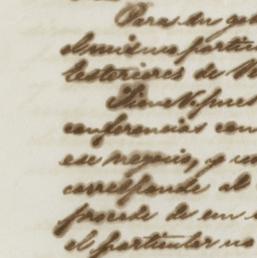 Para
el mismo particu
Esteriores de
Tiene V. pues
conferencias con
ese negocio, y
corresponde al
procede de un
el particular no